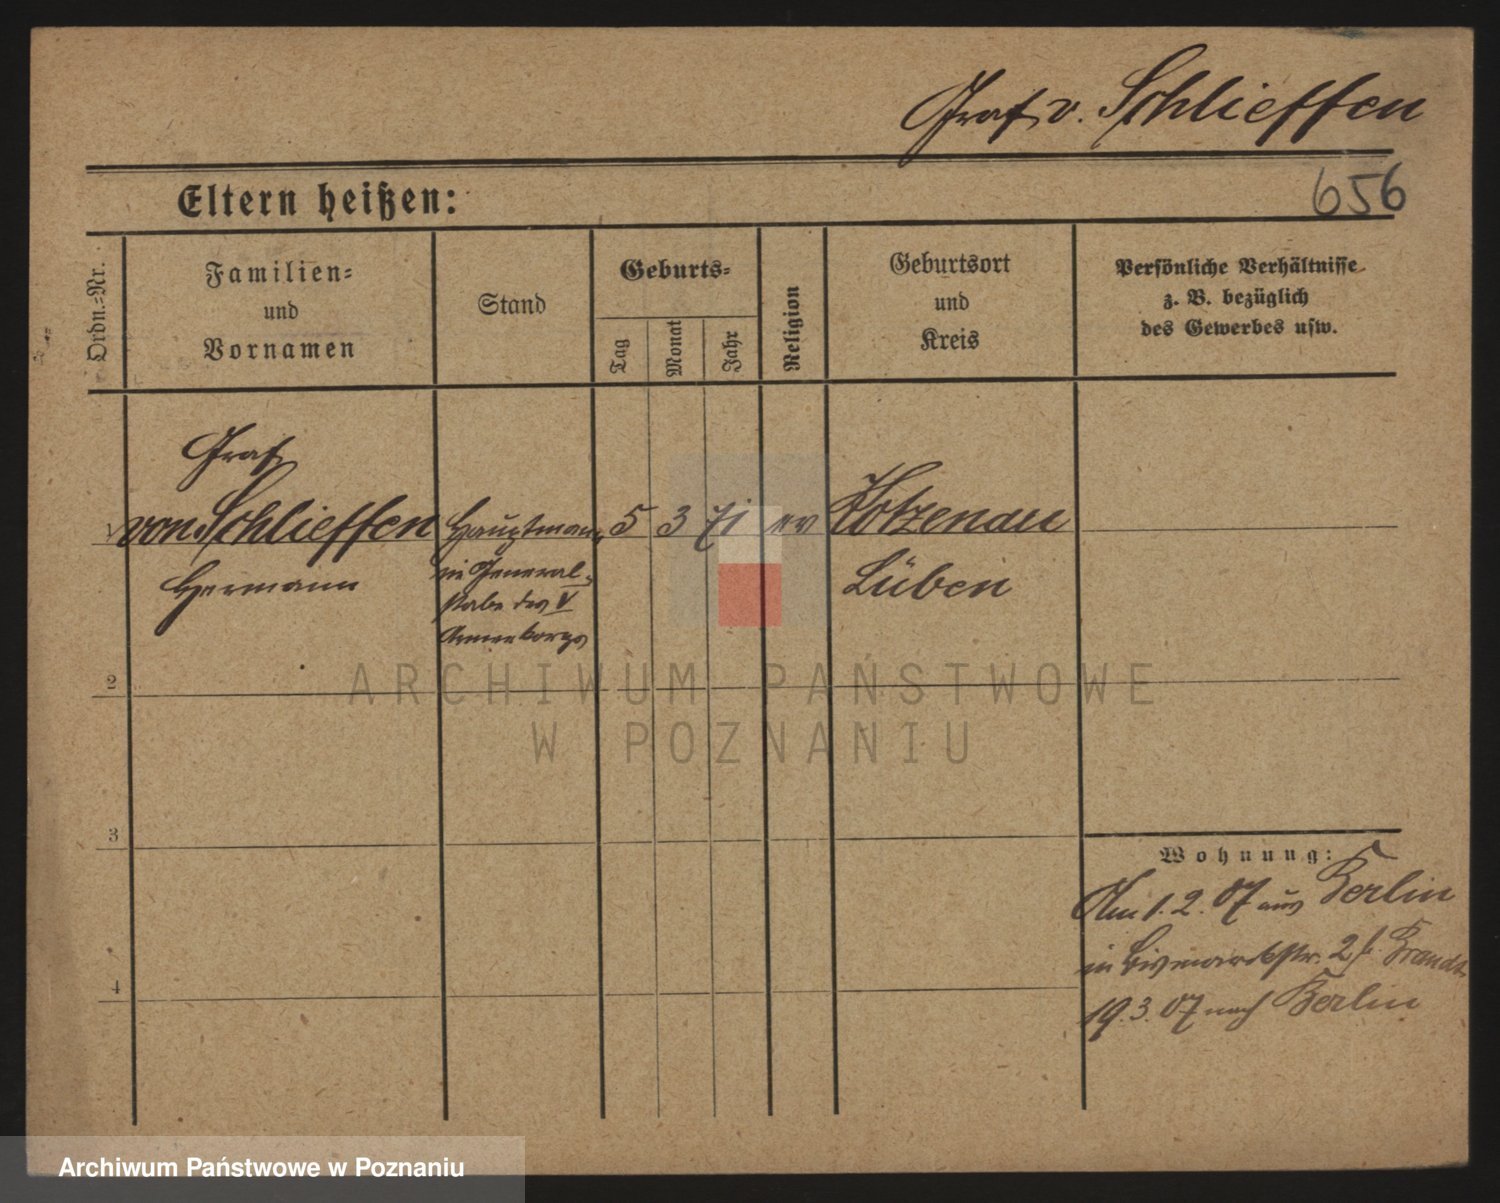 Graf v. Schlieffen
Eltern heißen:
656
Ordn.=Nr.
Familien=
und
Vornamen
Stand
Geburts=
Tag
Monat
Jahr
Religion
Geburtsort
und
Kreis
Persönliche Verhältnisse
z. B. bezüglich
des Gewerbes usw.
1
Graf
von Schlieffen
Hermann
Hauptmann
im General=
stabe des V
Armeekorps
5 3 71 ev
Kotzenau
Lüben
2
3
4
Wohnung:
Am 1. 2. 07 aus Berlin
in Bismarckstr. 2 Brandt
19. 3. 07 nach Berlin
ARCHIWUM PAŃSTWOWE
W POZNANIU
Archiwum Państwowe w Poznaniu